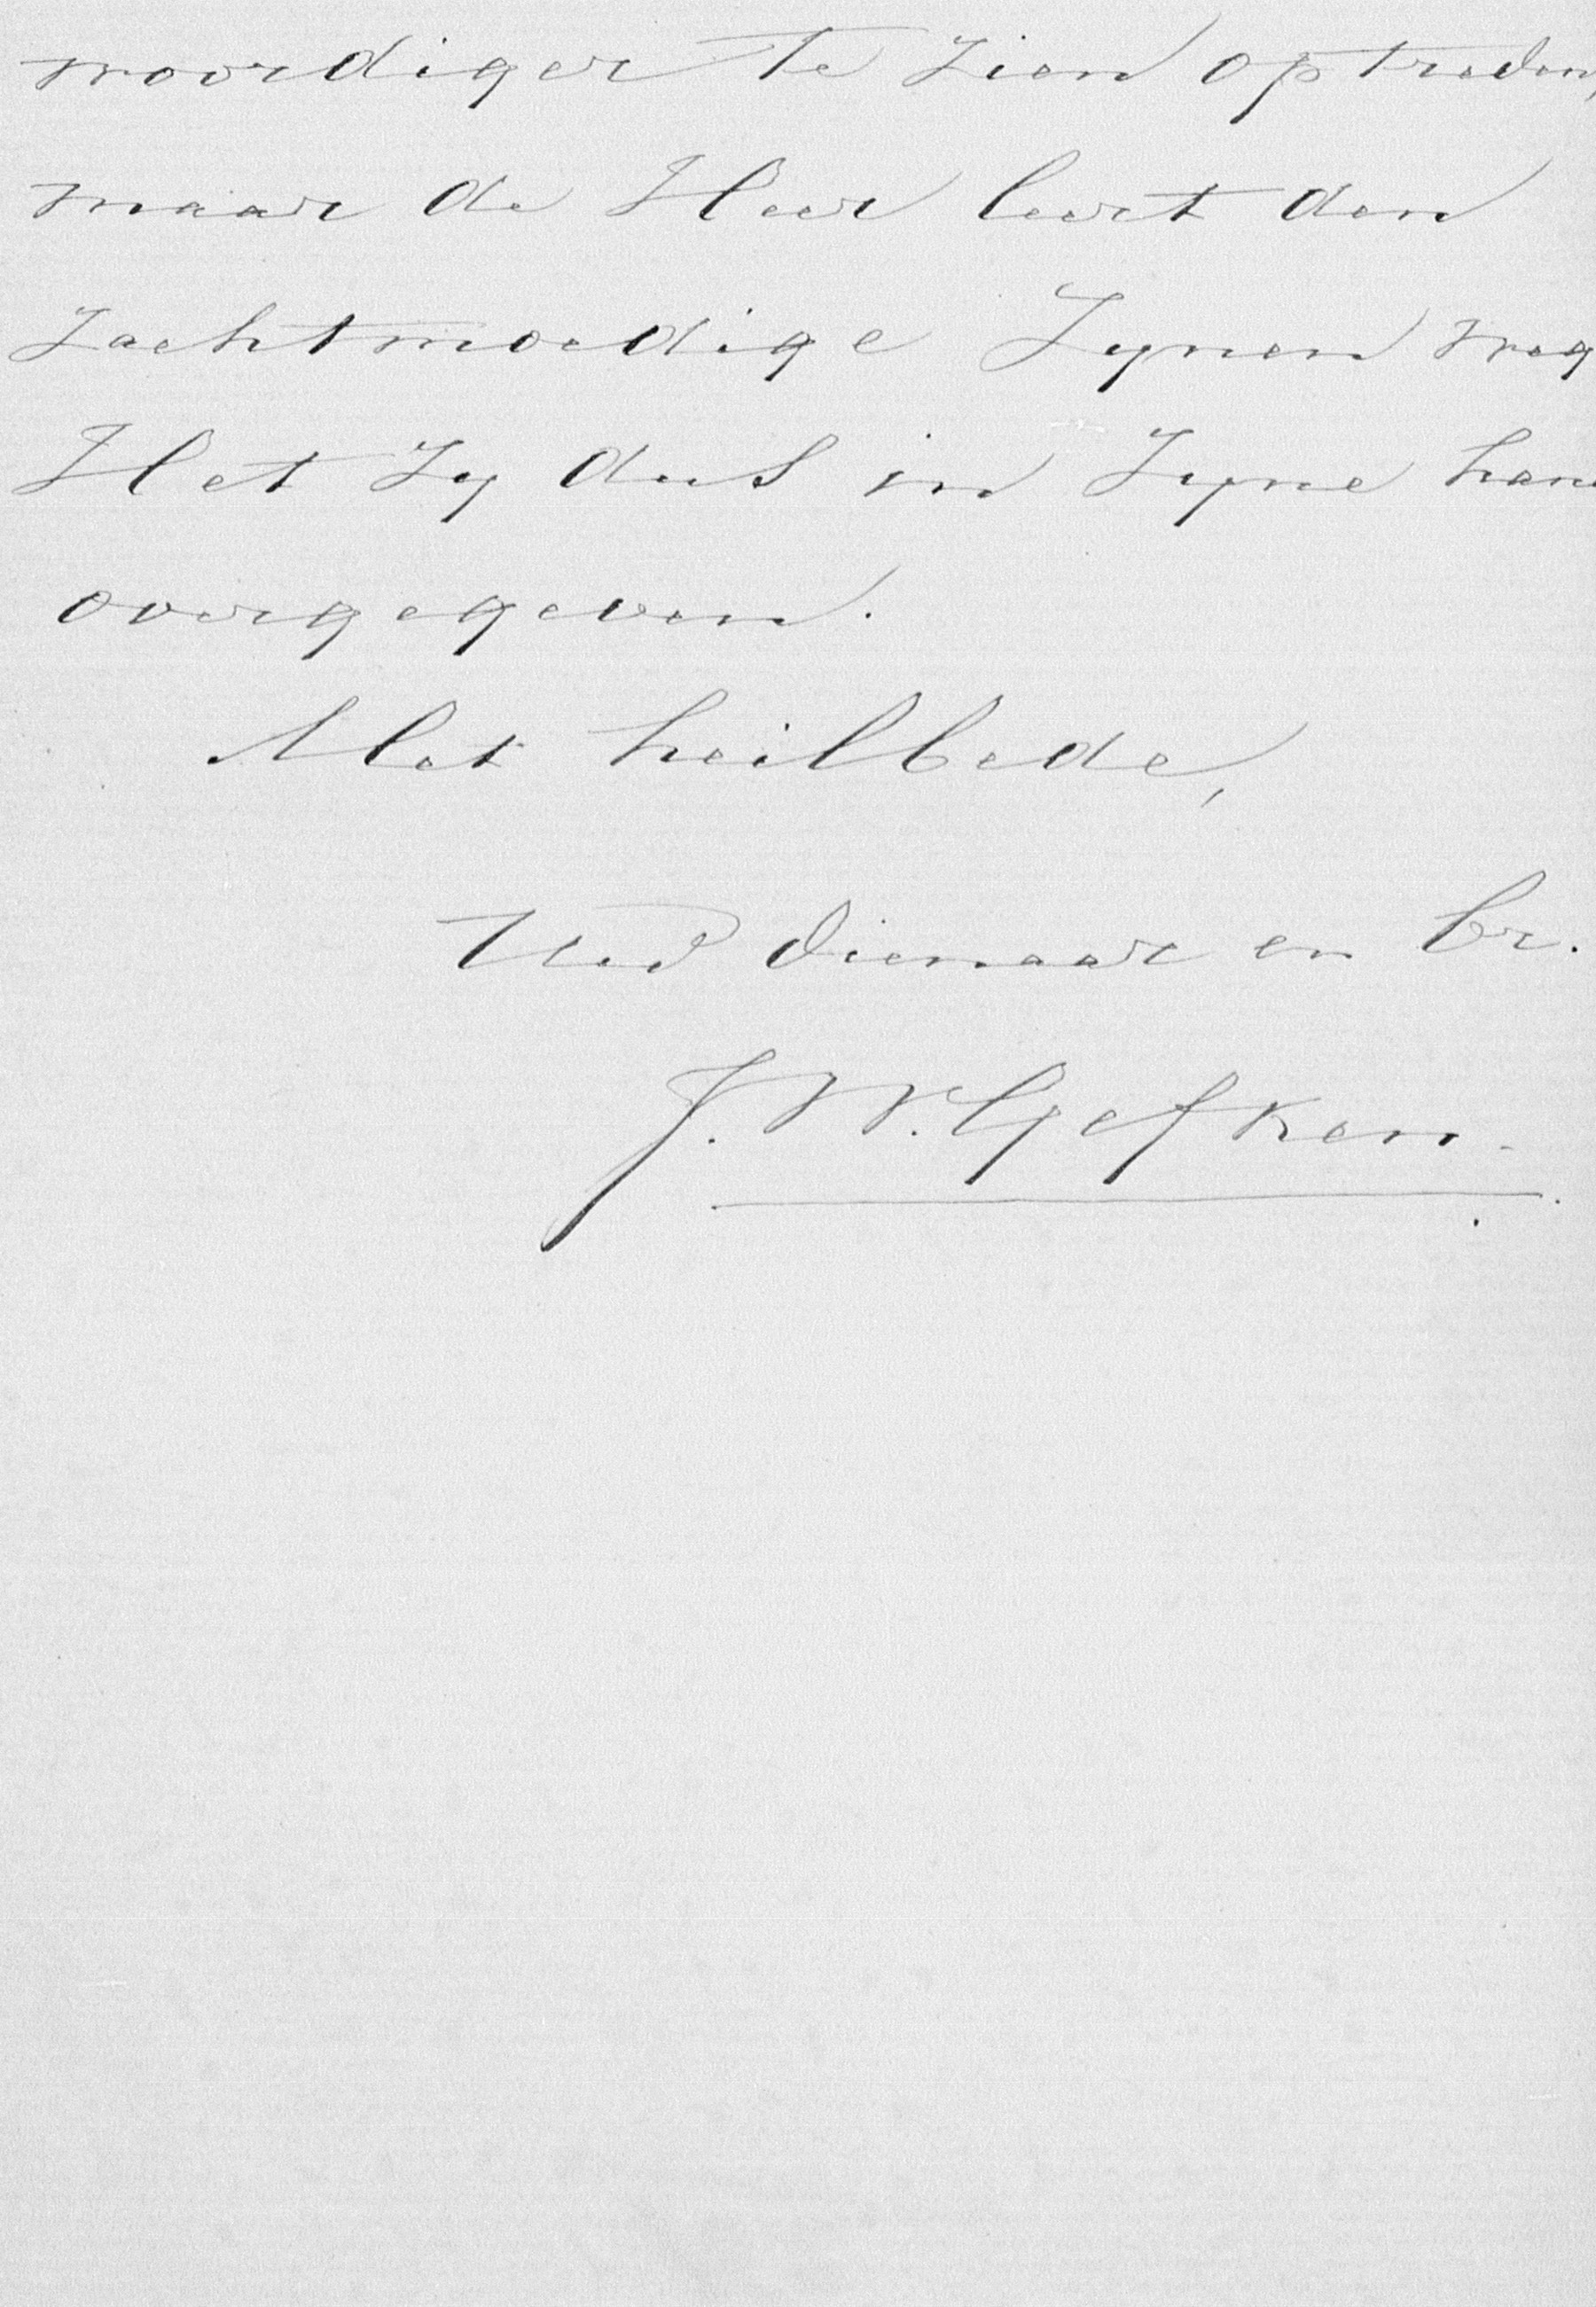 woordiger te zien optreden,
maar de Heer leert den
zachtmoedige Zynen weg
Het zy dus in Zyne hand
overgegeven.
Met heilbede,
UwD dienaar en br.
J. W. Gefken.